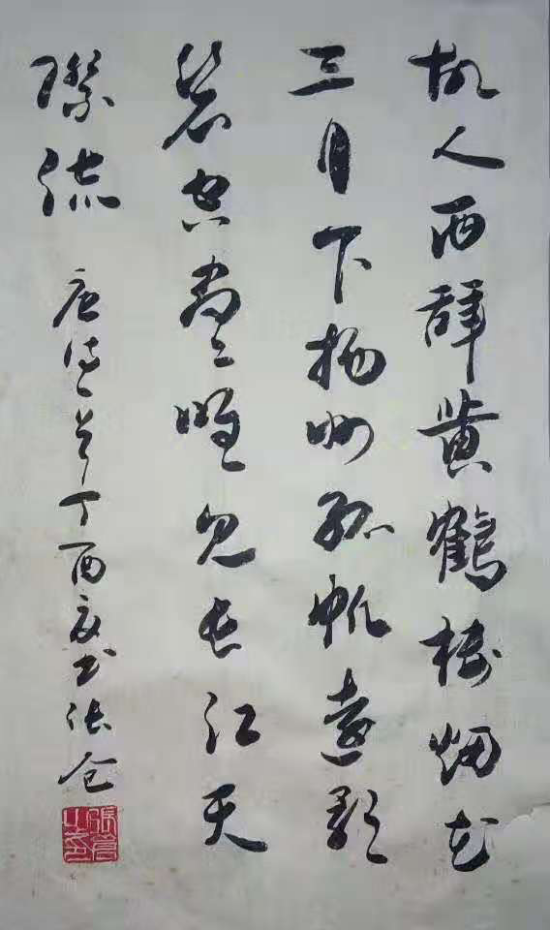 故人西辞黄鹤楼烟花
三月下扬州孤帆远影
碧空尽唯见长江天
际流 唐诗一首丁酉夏书张仓
張倉之印